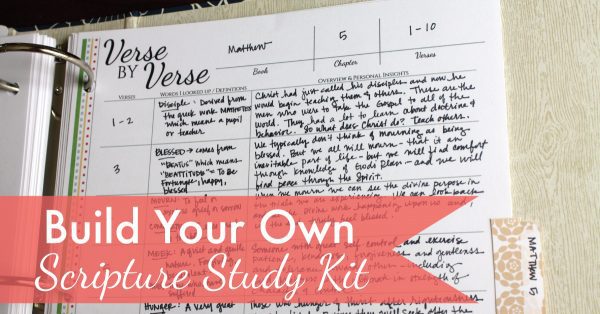 Verse
BY Verse
Matthew
5
1-10
Book
Chapter
Verses
VERSES
WORDS I LOOKED UP / DEFINITIONS
OVERVIEW & PERSONAL INSIGHTS
1-2
Disciple: Derived from
the greek work
which means a pupil
or teacher
Christ had just called his disciples and now he
would begin teaching them & others. These are the
men who were to take the Gospel to all of the
world. They had a lot to learn about doctrine &
behavior. So what does Christ do? Teach others.
3
BLESSED → comes from
"BEATUS" which means
"BEATTITUDE" = To Be
Fortunate, happy,
blessed
We typically don't think of mourning as being
blessed. But we all will mourn - that is an
inevitable part of life - but we will find comfort
through knowledge of God's plan - and we will
find peace through the Spirit.
MOURN: To feel
When we mourn we can see the divine purpose in
the trials we are experiencing. We can look back
Build Your Own
Scripture Study Kit
MEEK: A quiet and gentle
nature.
Someone with great self control and exercise
forgiveness and gentleness
HUNGER: A very great
Those who hunger & thirst after righteousness
MATTHEW 5